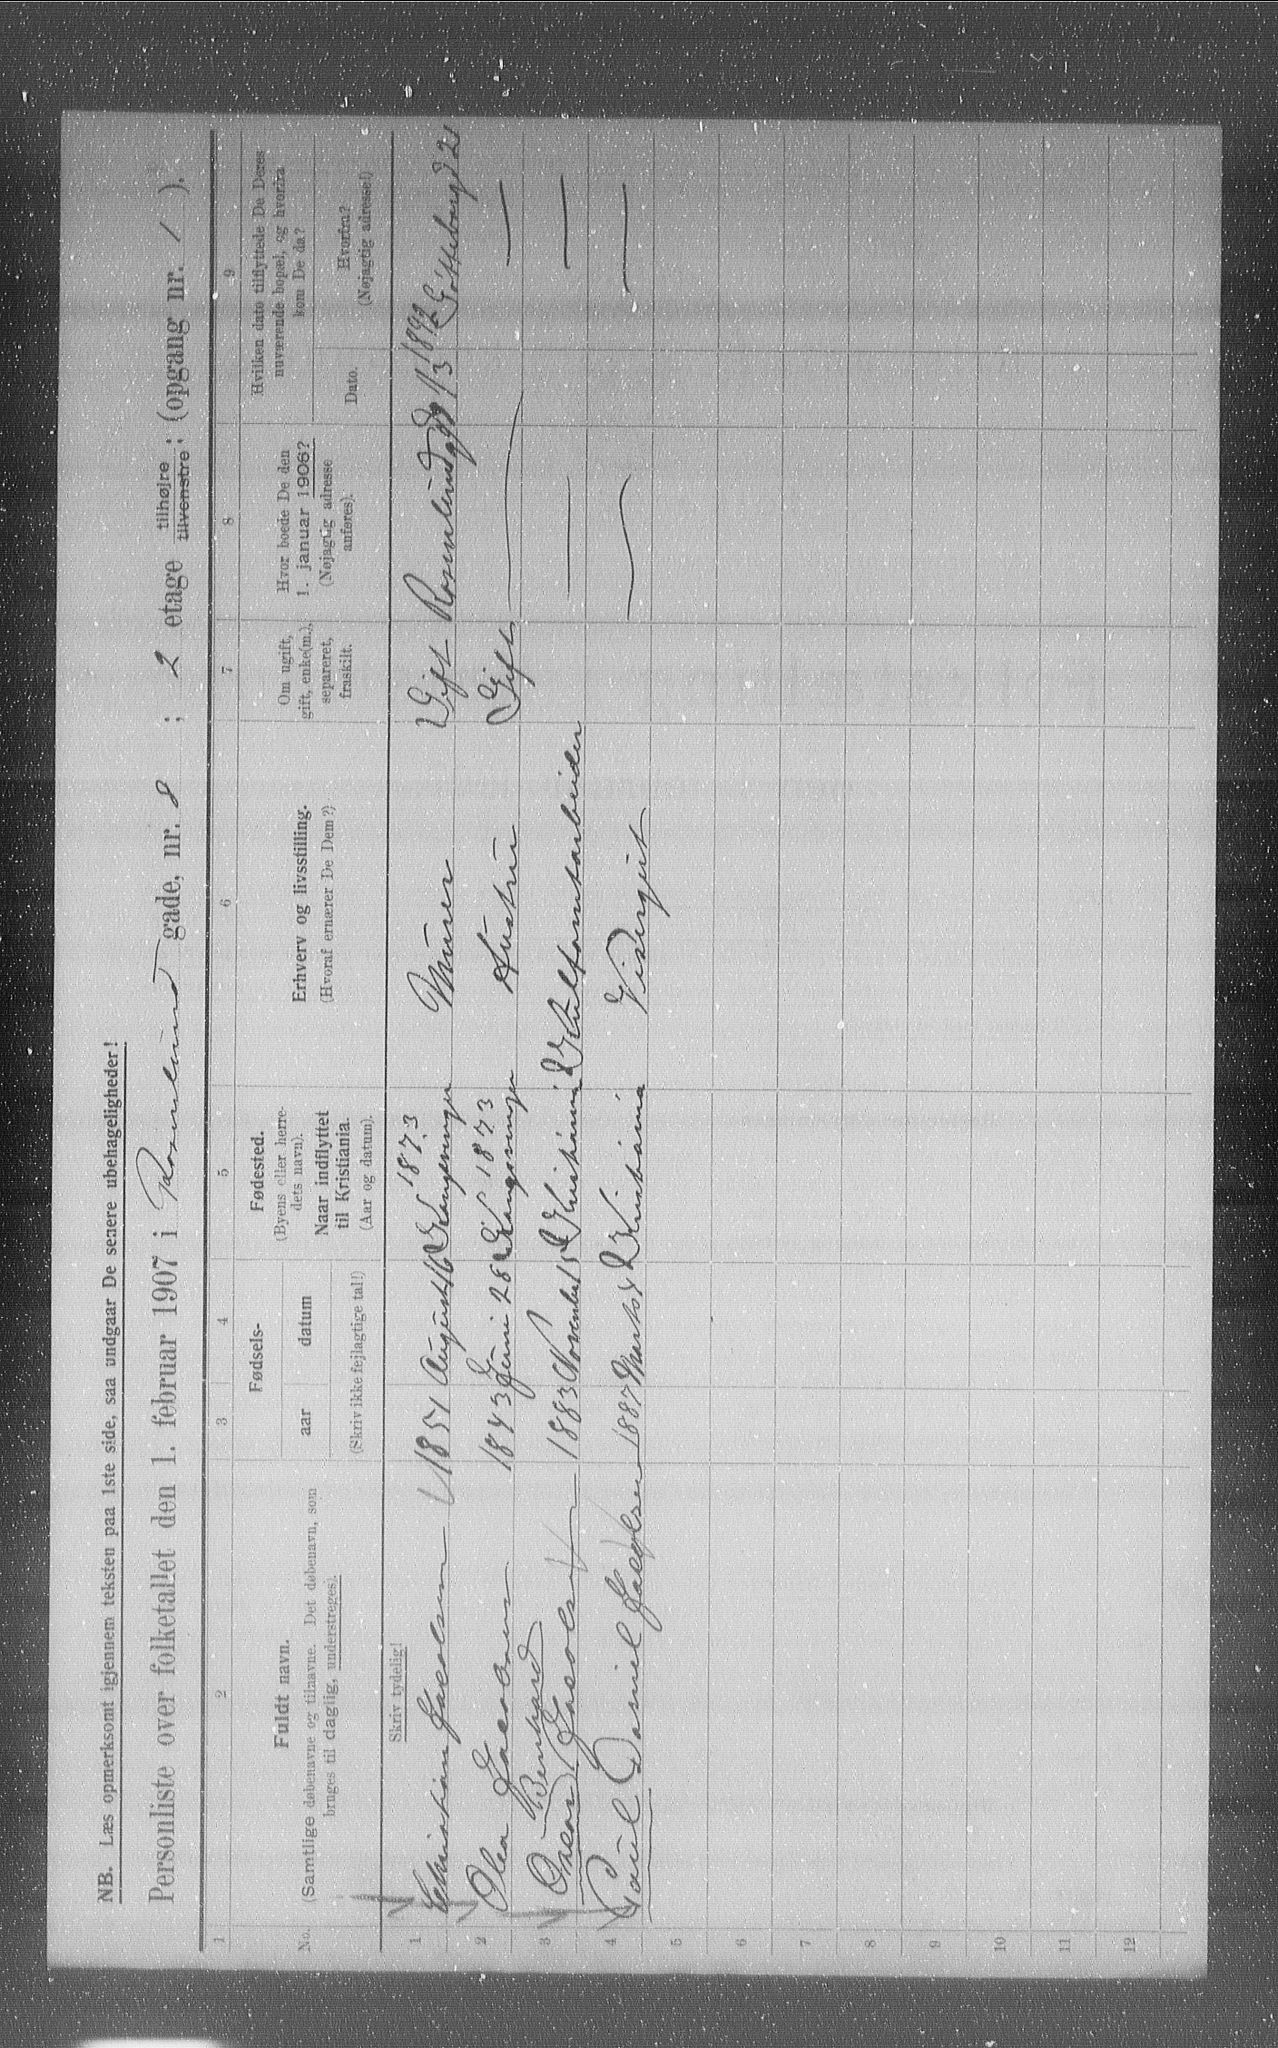 NB. Læs opmerksomt igjennem teksten paa 1ste side, saa undgaar De senere ubehageligheder!
Personliste over folketallet den 1. februar 1907 i Rosenlund gade, nr. 8 ; 2 etage tilhøjre tilvenstre ; (opgang nr. 1 ).
1 2 3 4 5 6 7 8 9
No.
Fuldt navn.
(Samtlige døbenavne og tilnavne. Det døbenavn, som
bruges til daglig, understreges).
Fødsels-
aar datum
(Skriv ikke fejlagtige tal!)
Fødested.
(Byens eller herre-
dets navn).
Naar indflyttet
til Kristiania.
(Aar og datum).
Erhverv og livsstilling.
(Hvoraf ernærer De Dem?)
Om ugift,
gift, enke(m.),
separeret,
fraskilt.
Hvor boede De den
1. januar 1906?
(Nøjagtig adresse
anføres).
Hvilken dato tilflyttede De Deres
nuværende bopæl, og hvorfra
kom De da?
Dato.
Hvorfra?
(Nøjagtig adresse!)
Skriv tydelig!
1873
1 Christian Jacobsen 1851 August 16 Kongsvinger Murer Gift Rosenlundgd 8 1/3 1892 Gøtteborggd 2
1873
2 Olea Jacobsen 1843 Juni 26 Kongsvinger Hustru Gift
Bernhard
3 Oscar Jacobsen 1883 November 15 Kristiania
4 Paul Daniel Jacobsen 1887 Marts Kristiania Visergut
5
6
7
8
9
10
11
12